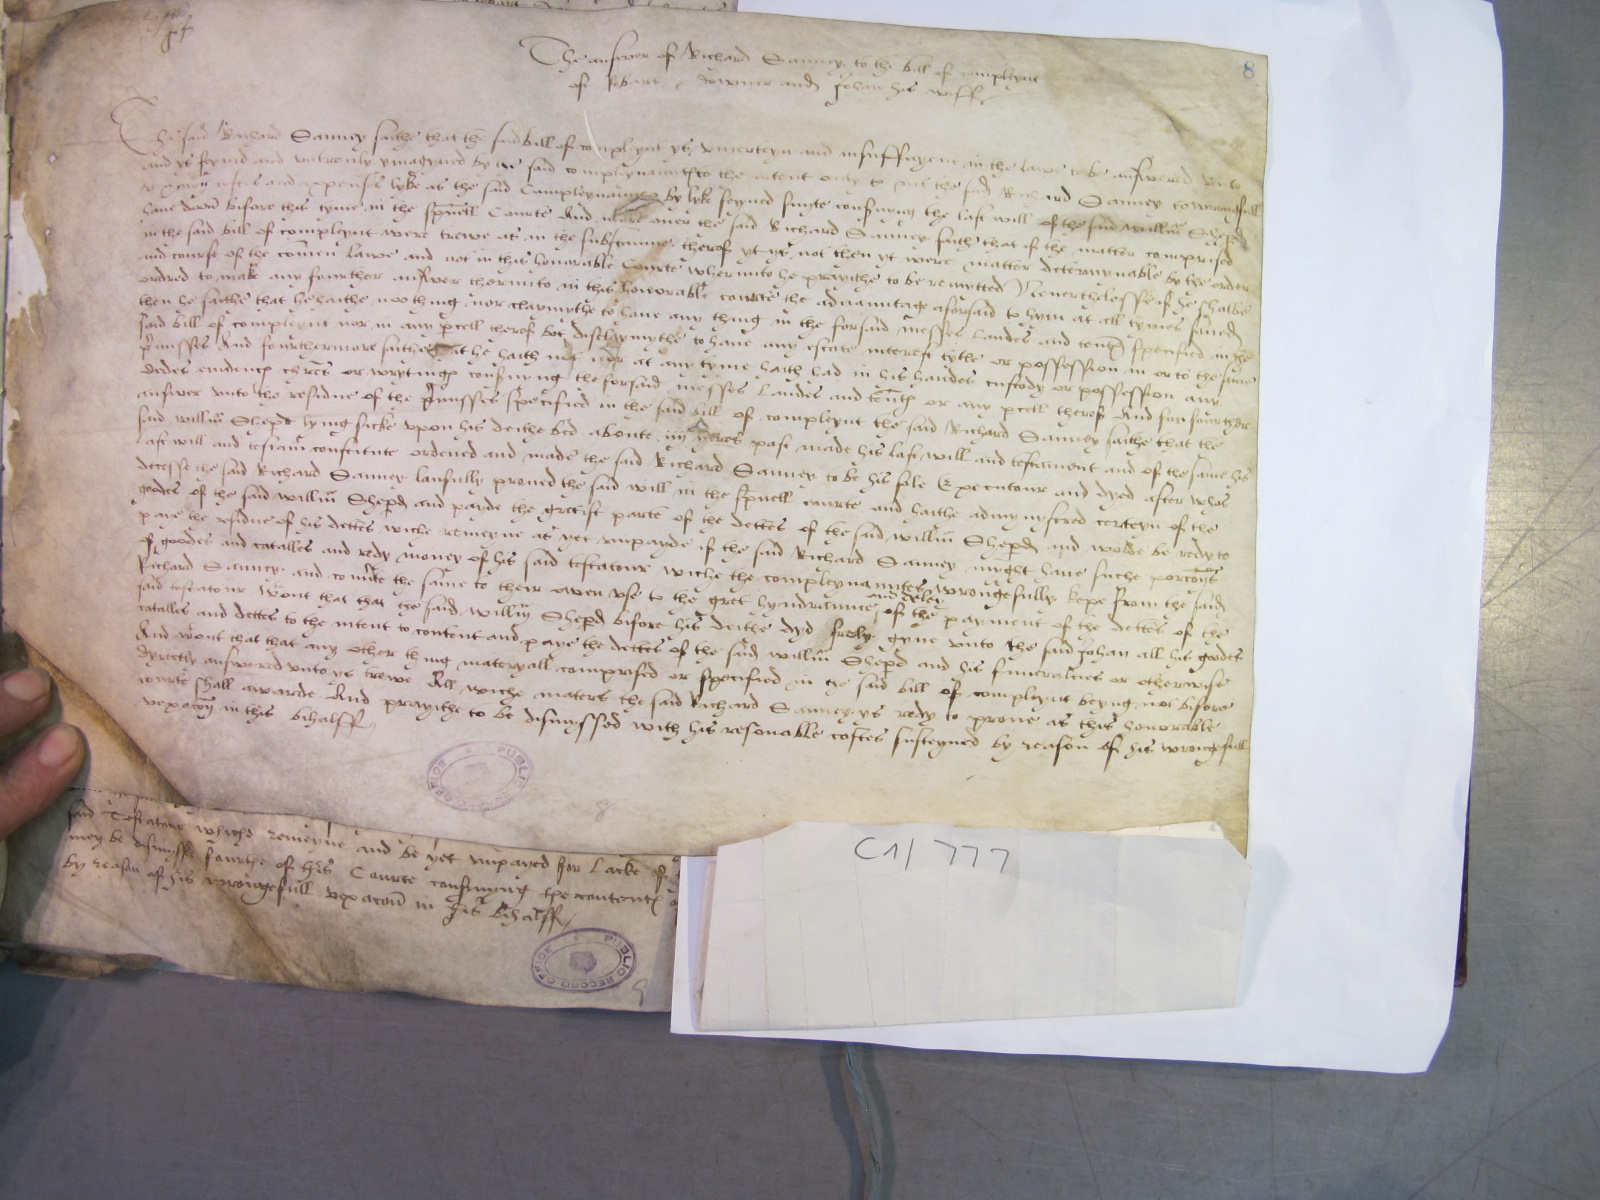 8
The answer of Richard Sanney to the bill of compleynt
of Robart downer and Johan his wiff
The said Richard Sanney saithe that the said bill of compleynt ys uncerteyn and insufficyent in the lawe to be answered unto
and ys feynid and untreuly ymagyned by the said compleynauntes to the intent only to put the said Richard Sanney to wrongfull
vexacon costes and expenses lyke as the said Compleynauntes by lyke feyned suyte consnyng the last will of the said willm Sheperd
have doon bifore this tyme in the spuell Courte And more over the said Richard Sanney saith that if the matter comprised
in the said bill of compleynt were trewe as in the substaunce therof yt ys not then yt were matter determynable by the order
and course of the comen lawe and not in this honorable Courte wherunto he prayithe to be remytted Neverthelesse if he shalbe
ordred to make any fourther answer therunto in this honorable courte the advauntage aforsaid to hym at all tymes saved
then he saithe that he haithe nothing nor claymythe to have any thing in the forsaid messes landes and tentes specified in the
said bill of compleynt nor in any pcell therof bot disclaymythe to have any estate interest tytle or possession in or to the same
pmisses And fourthermore saithe that he haith not nor at any tyme haith had in his handes custody or possession any
dedes evidences chres or wrytinges consnyng the forsaid messes landes and tentes or any pcell therof And for fourther
answer unto the residue of the pmisses specified in the said bill of compleynt the said Richard Sanney saithe that the
said willm Sheperd lying sicke upon his deithe bed aboute iiij yeres past made his last will and testament and of the same his
last will and testam constitute ordened and made the said Richard Sanney to be his sole Executour and dyed after whos
decesse the said Richard Sanney laufully proved the said will in the spuell courte and haithe admynystred certeyn of the
goodes of the said willm Sheperd and payde the grettest parte of the dettes of the said willm Sheperd and wolde be redy to
paye the residue of his dettes wiche remeyne as yet unpayde if the said Richard Sanney myght have suche porcons
of goodes and catalles and redy money of his said testatour wiche the compleynauntes wrongefully kepe from the said
Richard Sanney and convte the same to their owen use to the gret hyndraunce and deley of the payment of the dettes of the
said testatour Wout that that the said willm Sheperd bifore his deithe dyd frely gyve unto the said Johan all his goodes
catalles and dettes to the intent to content and paye the dettes of the said willm Sheperd and his funeralles or otherwise
And wout that that any other thing materyall comprised or specified in the said bill of compleynt beyng not bifore
dyrectly answered unto ys trewe All wiche maters the said Richard Sanney ys redy to prove as this honorable
courte shall awarde And prayithe to be dismyssed with his resonable costes susteyned by reason of his wrongefull
vexacon in this bihalff
PUBLIC RECORD OFFICE
8
said Testatour whiche remeyne and be yet unpayed for lacke of
may be dismyssed fourthe of this Courte consnyng the contentes
by reason of his wrongefull vexacon in this bihalff
PUBLIC RECORD OFFICE
9
C1/777